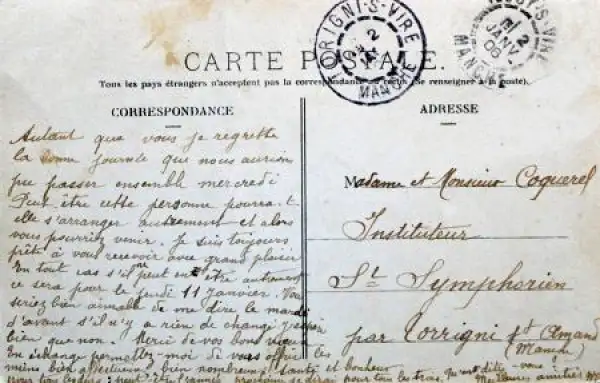 CARTE POSTALE.
TORIGNI-S-VIRE
2
MANCHE
S-VIRE
2
JANV
06
MANCHE
Tous les pays étrangers n'acceptent pas la correspondance au recto (Se renseigner à la poste).
CORRESPONDANCE
Autant que vous je regrette
la bonne journée que nous aurions
pu passer ensemble mercredi
Peut être cette personne pourra-t
elle s'arranger autrement et alors
vous pourriez venir. Je suis toujours
prête à vous recevoir avec grand plaisir
En tout cas s'il peut en être autrement
ce sera pour le jeudi 11 Janvier. Vous
seriez bien aimable de me dire le mardi
d'avant s'il n'y a rien de changé j'espère
bien que non. Merci de vos bons vœux
En échange permettez-moi de vous offrir les
miens bien affectueux bien nombreux: santé et bonheur
pour tous
ADRESSE
Madame et Monsieur Coquerel
Instituteur
St Symphorien
par Torrigni St Amand
(Manche)